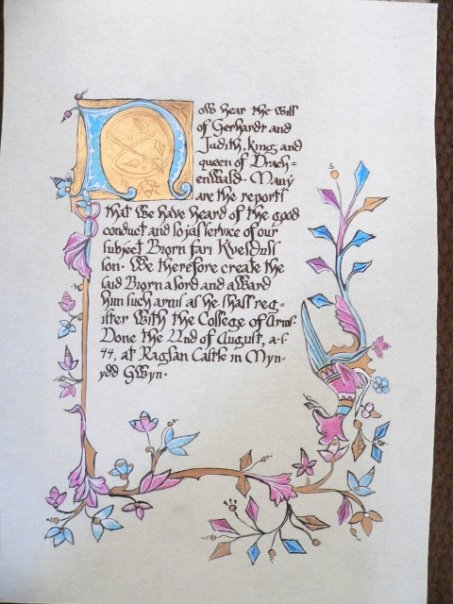 Now hear the will
of Gerhardt and
Judith, king and
queen of Drach-
enwald. Many
are the reports
that we have heard of the good
conduct and loyal service of our
subject Bjorn fari
son. We therefore create the
said Bjorn a lord and award
him such arms as he shall reg-
ister with the College of Arms.
Done the 22nd of August, a.s.
44, at Raglan Castle in Myn-
ydd Gwyn.